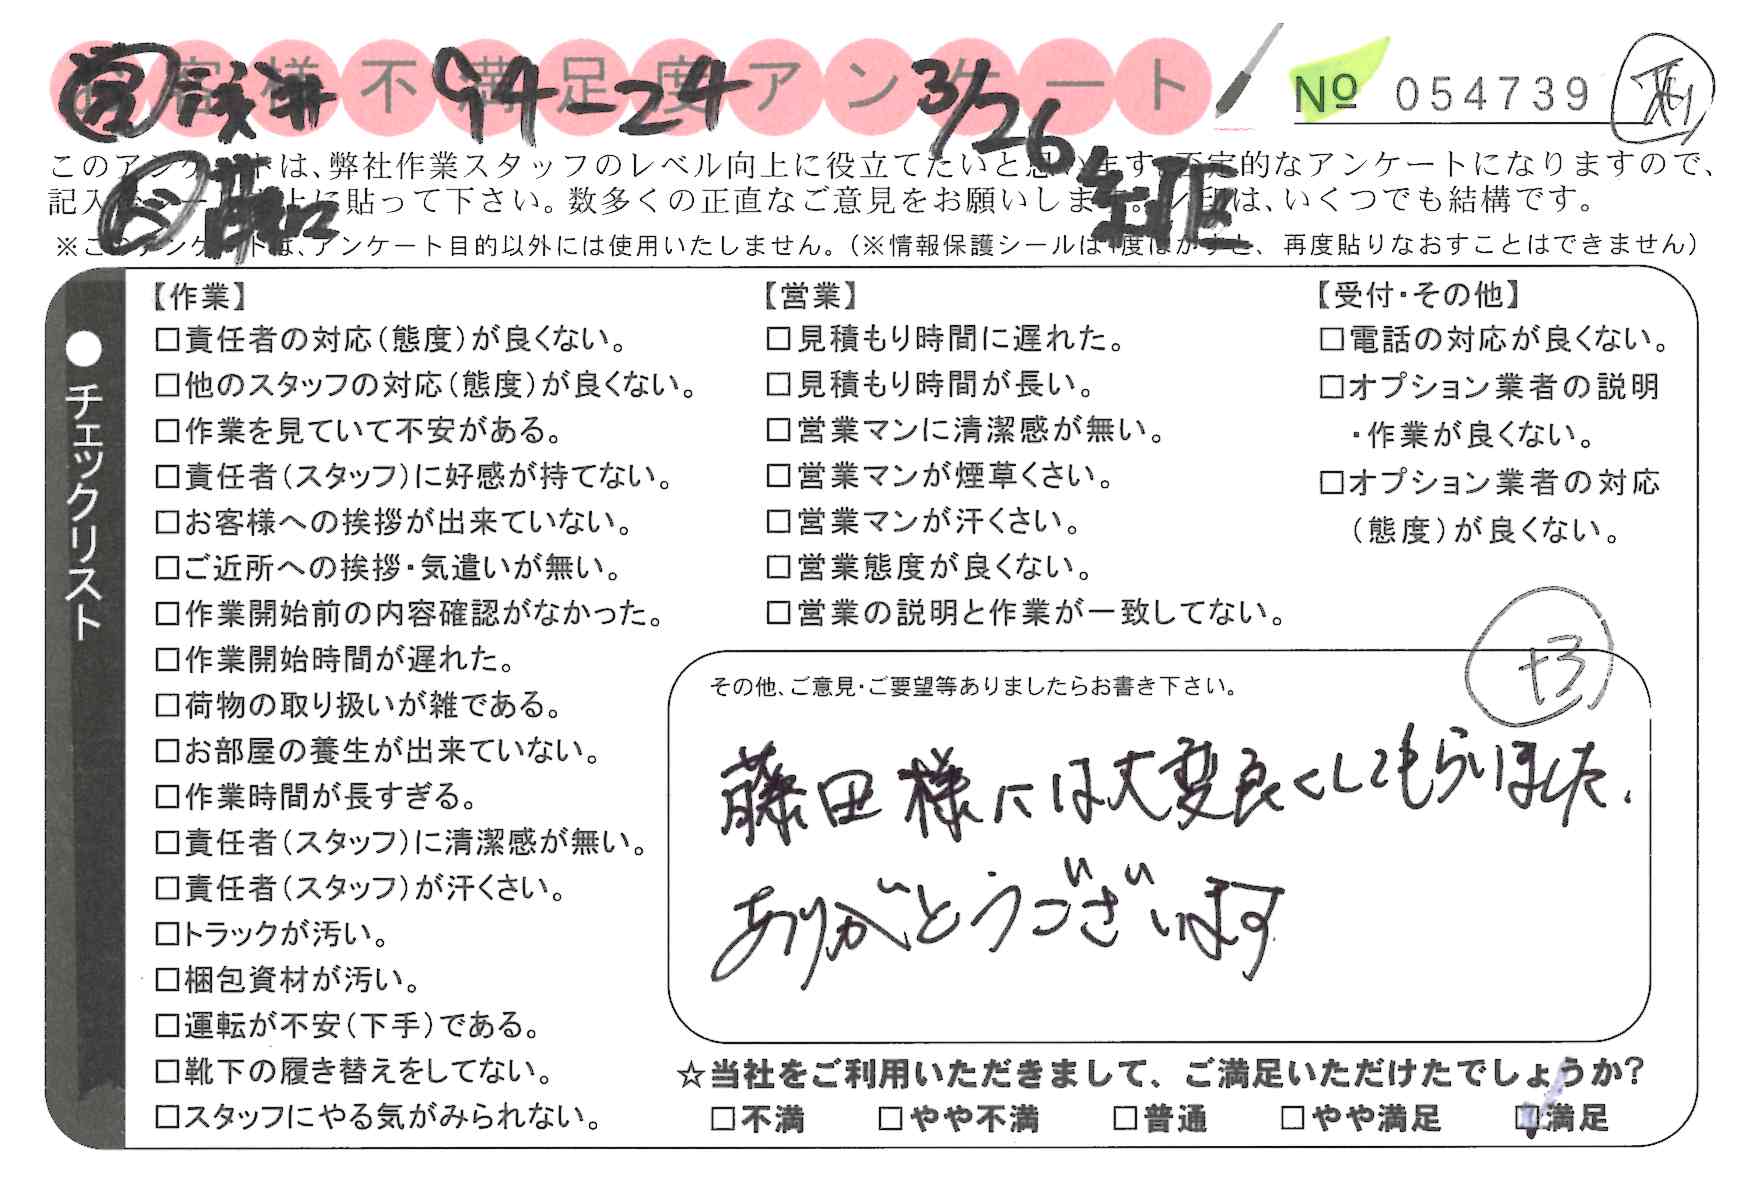 お客様不満足度アンケート
営 浅井 94-24 3/26
№ 054739
このアンケートは、弊社作業スタッフのレベル向上に役立てたいと思います。否定的なアンケートになりますので、
記入後シールを上に貼って下さい。数多くの正直なご意見をお願いします。レ印は、いくつでも結構です。
※このアンケートは、アンケート目的以外には使用いたしません。（※情報保護シールは1度はがすと、再度貼りなおすことはできません）
●チェックリスト
【作業】
□責任者の対応（態度）が良くない。
□他のスタッフの対応（態度）が良くない。
□作業を見ていて不安がある。
□責任者（スタッフ）に好感が持てない。
□お客様への挨拶が出来ていない。
□ご近所への挨拶・気遣いが無い。
□作業開始前の内容確認がなかった。
□作業開始時間が遅れた。
□荷物の取り扱いが雑である。
□お部屋の養生が出来ていない。
□作業時間が長すぎる。
□責任者（スタッフ）に清潔感が無い。
□責任者（スタッフ）が汗くさい。
□トラックが汚い。
□梱包資材が汚い。
□運転が不安（下手）である。
□靴下の履き替えをしてない。
□スタッフにやる気がみられない。
【営業】
□見積もり時間に遅れた。
□見積もり時間が長い。
□営業マンに清潔感が無い。
□営業マンが煙草くさい。
□営業マンが汗くさい。
□営業態度が良くない。
□営業の説明と作業が一致してない。
【受付・その他】
□電話の対応が良くない。
□オプション業者の説明
・作業が良くない。
□オプション業者の対応
（態度）が良くない。
+3
その他、ご意見・ご要望等ありましたらお書き下さい。
藤田様には大変良くしてもらいました.
ありがとうございます
☆当社をご利用いただきまして、ご満足いただけたでしょうか？
□不満 □やや不満 □普通 □やや満足 ☑満足